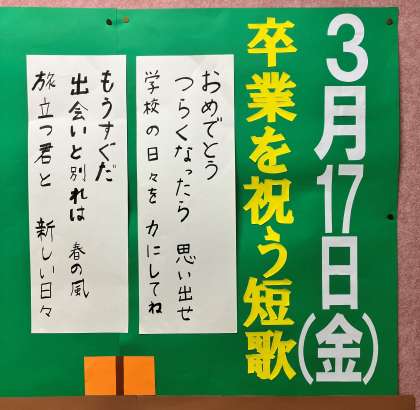 3月17日(金)
卒業を祝う短歌
おめでとう
つらくなったら 思い出せ
学校の日々を 力にしてね
もうすぐだ
出会いと別れは 春の風
旅立つ君と 新しい日々